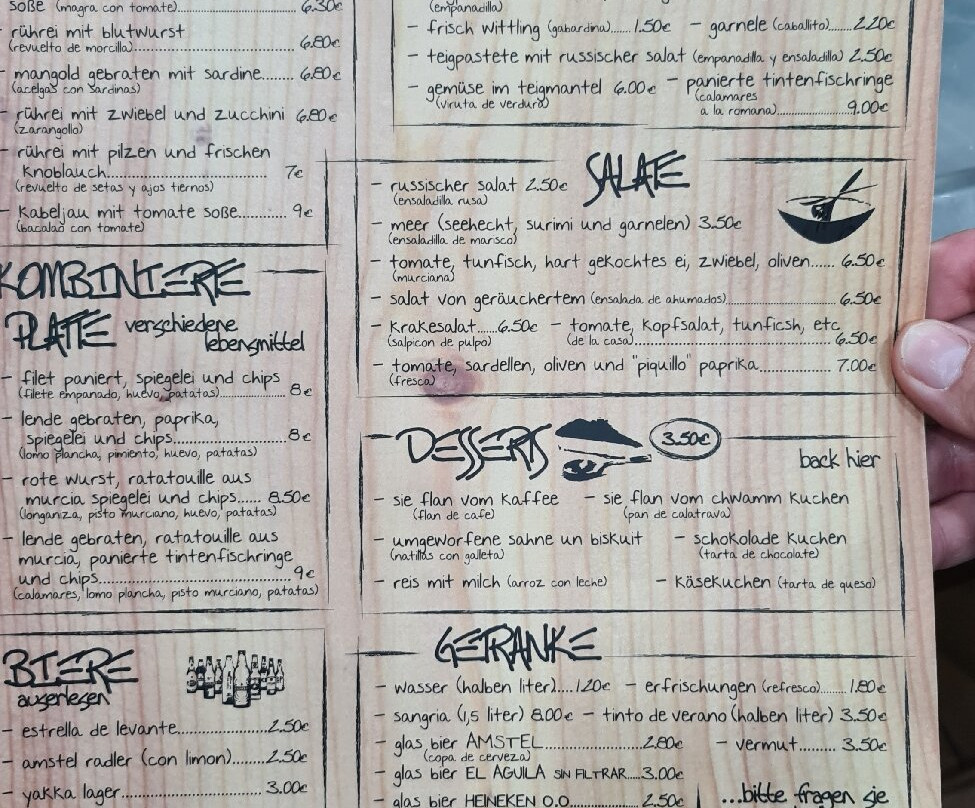 soße (magra con tomate) 6.30€
rührei mit blutwurst
(revuelto de morcilla) 6.80€
- mangold gebraten mit sardine 6.80€
(acelgas con sardinas)
- rührei mit zwiebel und zucchini 6.80€
(zarangollo)
- rührei mit pilzen und frischen
Knoblauch 7€
(revuelto de setas y ajos tiernos)
- Kabeljau mit tomate soße 9€
(bacalao con tomate)
KOMBINIERTE
PLATTE verschiedene
lebensmittel
- filet paniert, spiegelei und chips
(filete empanado, huevo, patatas) 8€
- lende gebraten, paprika,
spiegelei und chips 8€
(lomo plancha, pimiento, huevo, patatas)
- rote wurst, ratatouille aus
murcia spiegelei und chips 8.50€
(longaniza, pisto murciano, huevo, patatas)
- lende gebraten, ratatouille aus
murcia, panierte tintenfischringe
und chips 9€
(calamares, lomo plancha, pisto murciano, patatas)
BIERE
auserlesen
- estrella de levante 2.50€
- amstel radler (con limon) 2.50€
- yakka lager 3.00€
(empanadilla)
- frisch wittling (gabardina) 1.50€ - garnele (caballito) 2.20€
- teigpastete mit russischer salat (empanadilla y ensaladilla) 2.50€
- gemüse im teigmantel 6.00€ - panierte tintenfischringe
(viruta de verdura) (calamares
a la romana) 9.00€
SALATE
- russischer salat 2.50€
(ensaladilla rusa)
- meer (seehecht, surimi und garnelen) 3.50€
(ensaladilla de marisco)
- tomate, tunfisch, hart gekochtes ei, zwiebel, oliven 6.50€
(murciana)
- salat von geräuchertem (ensalada de ahumados) 6.50€
- Krakesalat 6.50€ - tomate, Kopfsalat, tunficsh, etc
(salpicon de pulpo) (de la casa) 6.50€
- tomate, sardellen, oliven und "piquillo" paprika 7.00€
(fresca)
DESSERTS 3.50€
back hier
- sie flan vom Kaffee - sie flan vom chwamm Kuchen
(flan de cafe) (pan de calatrava)
- umgeworfene sahne un biskuit - schokolade Kuchen
(natillas con galleta) (tarta de chocolate)
- reis mit milch (arroz con leche) - Käsekuchen (tarta de queso)
GETRANKE
- wasser (halben liter) 1.20€ - erfrischungen (refresco) 1.80€
- sangria (1,5 liter) 8.00€ - tinto de verano (halben liter) 3.50€
- glas bier AMSTEL 2.80€ - vermut 3.50€
(copa de cerveza)
- glas bier EL AGUILA SIN FILTRAR 3.00€
- glas bier HEINEKEN 0.0 2.50€ ...bitte fragen sie